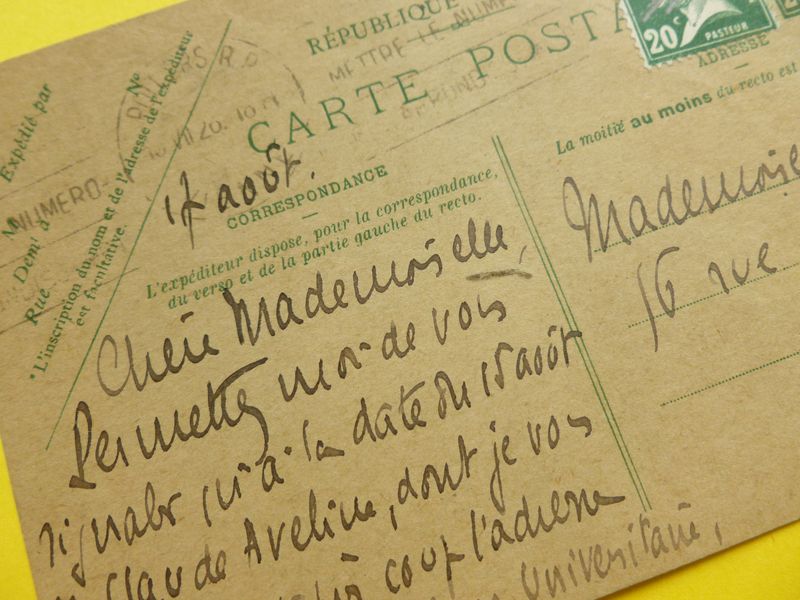 RÉPUBLIQUE
CARTE POSTA
METTRE LE NUME
NUMERO
20c
PASTEUR
ADRESSE
Expédié par
M
Demt à
Rue
No
* L'inscription du nom et de l'adresse de l'expéditeur
est facultative.
17 août.
CORRESPONDANCE
L'expéditeur dispose, pour la correspondance,
du verso et de la partie gauche du recto.
La moitié au moins du recto est
Mademoise
16 rue
Chère Mademoiselle,
Permettez moi de vous
signaler qu'à la date du 15 août
Claude Aveline, dont je vous
coup l'adresse
Universitaire,